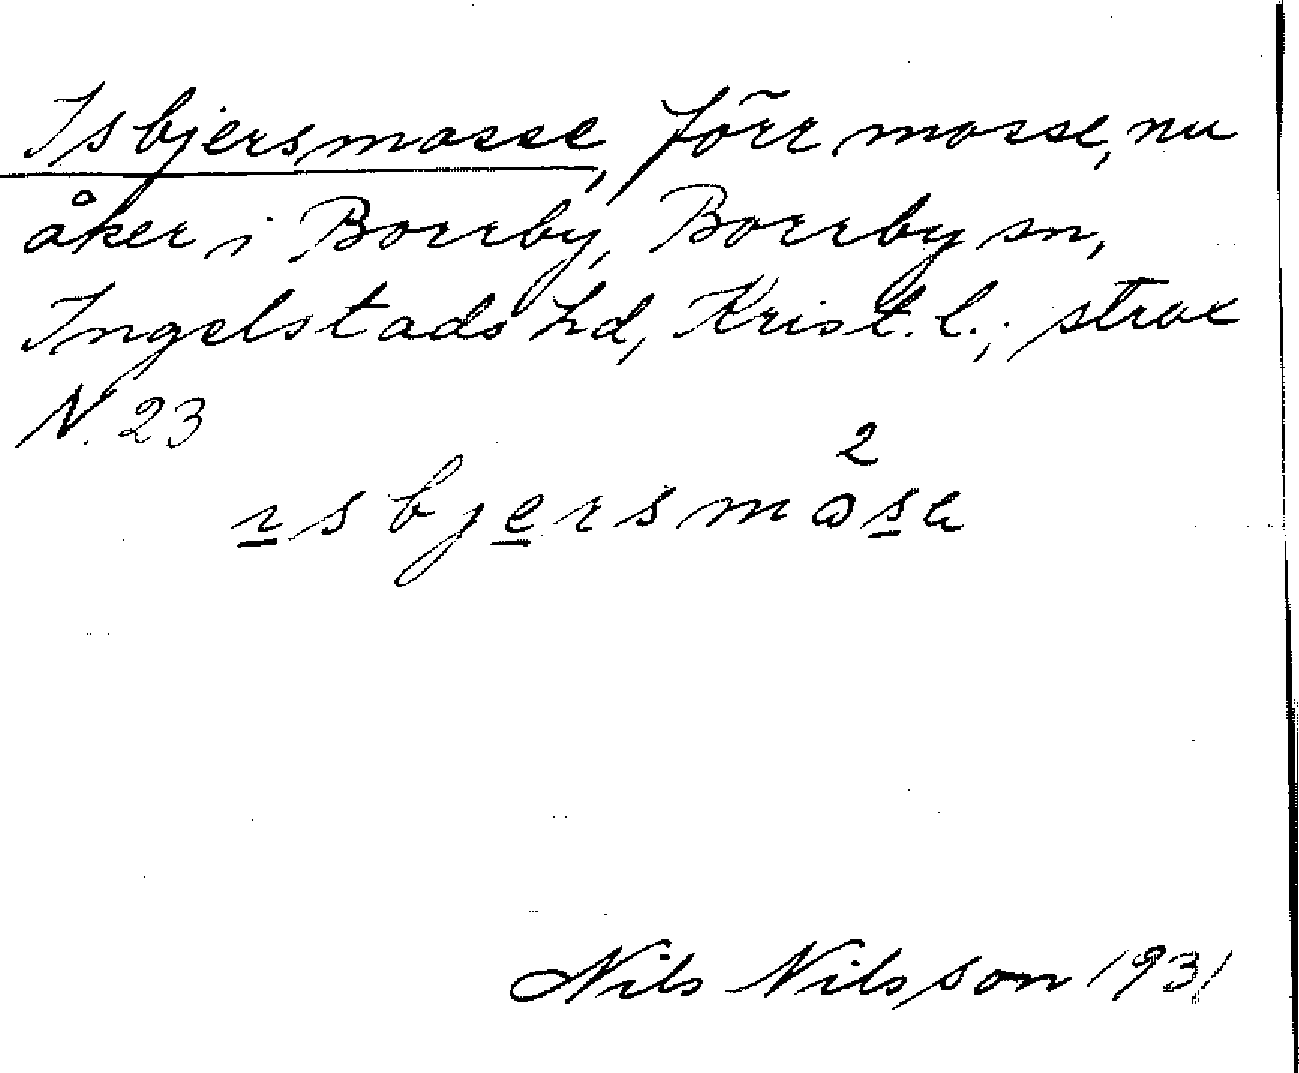 Isbjersmosse, förr mosse, nu
åker i Borrby, Borrby sn,
Ingelstads hd, Krist. l.; strax
N. 23
2
ısbjersmɔsa
Nils Nilsson 1931